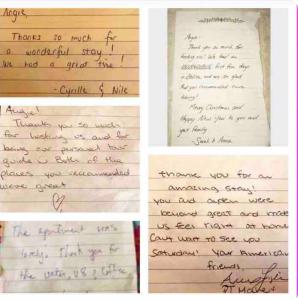 Angie,
Thanks so much for
a wonderful stay!
We had a great time!
- Cyrille & Nile
Angie!
Thank you so much
for hosting us and for
being our personal tour
guide. Both of the
places you reccommended
were great
The apartment was
lovely. Thank you for
the water, & coffee
Angie -
Thank you so much for
hosting us! We had an
first few days
in and we are so glad
that you recommended
Merry Christmas and
Happy New Year to you and
your family
- Sarah & Anna
thank you for an
amazing stay!
you and were
beyond great and made
us feel right at home
Can't wait to see you
Saturday! Your American
friends,